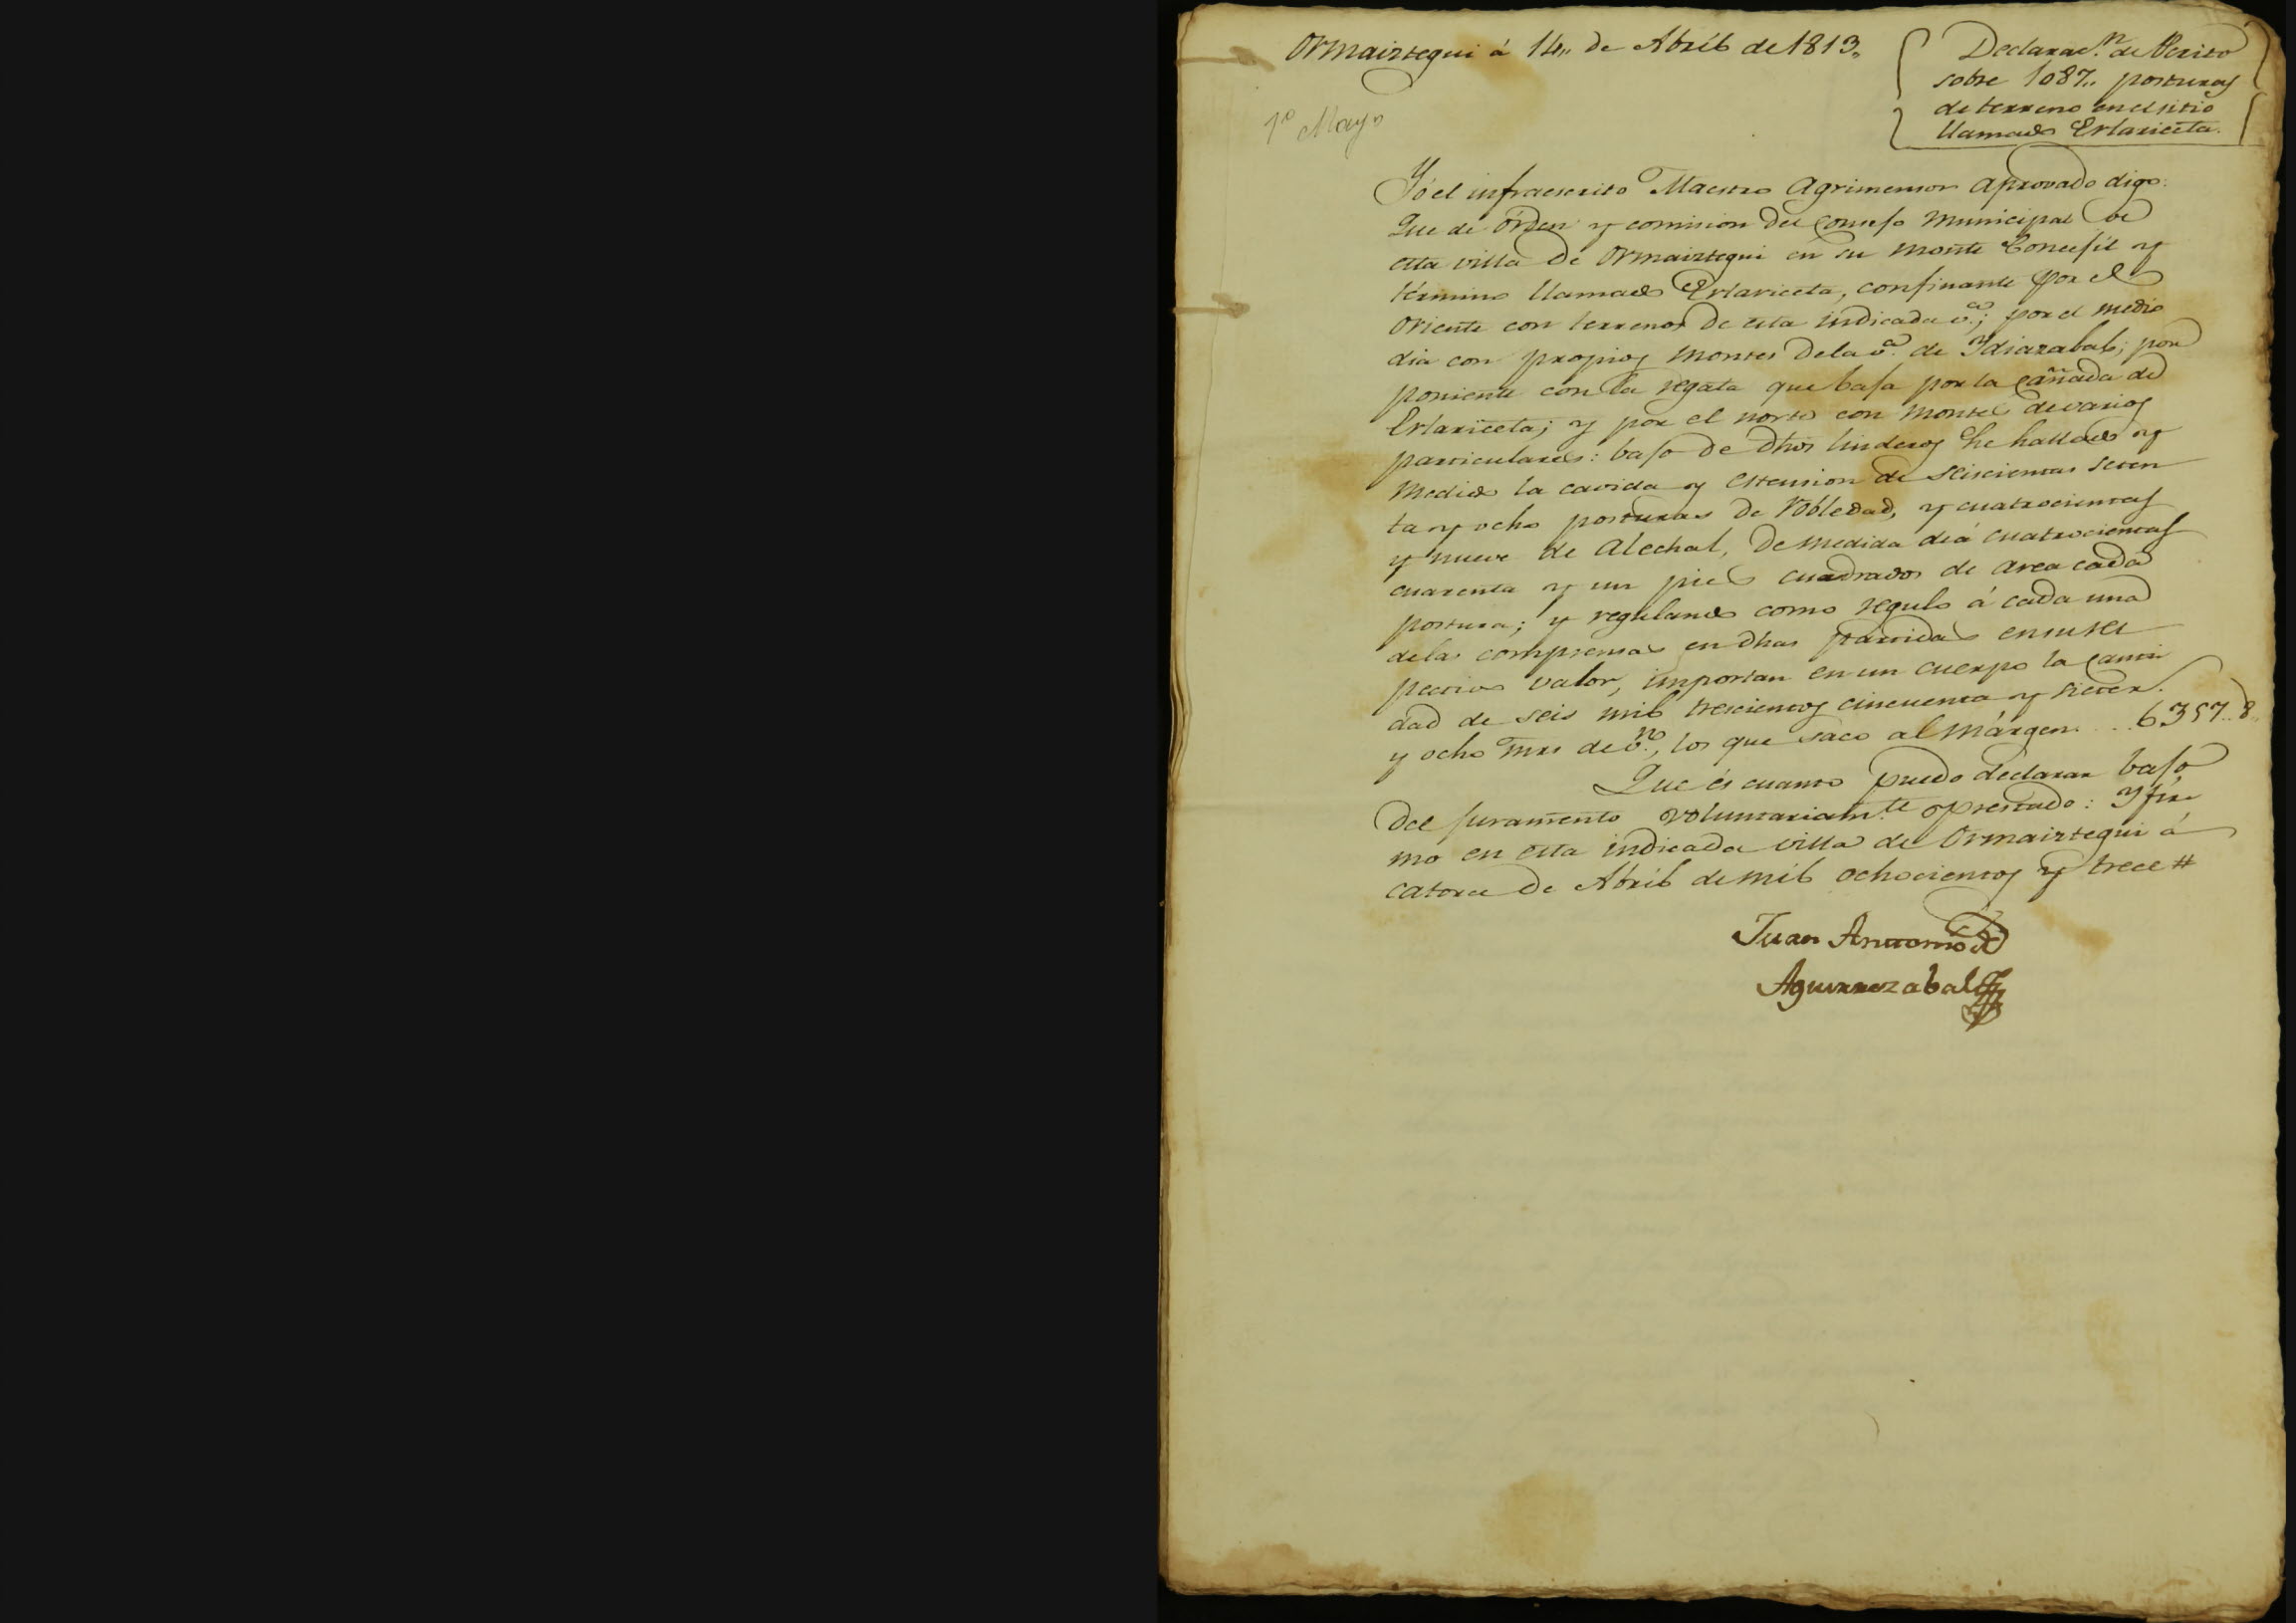 Ormaiztegui á 14,, de Abril de 1813,,
Declarac.n de Perito
sobre 1087,, posturas
de terreno en el sitio
llamado Erlariceta.
1.o Mayo
Yó el infraescrito Maestro Agrimensor aprovado digo:
Que de órden y comision del Consejo municipal de
esta villa de Ormaiztegui en su monte Concejil y
término llamado Erlariceta, confinante por el
oriente con terrenos de esta indicada v.a; por el medio
dia con propios montes de la v.a de Ydiazabal; por
poniente con la regata que baja por la cañada de
Erlariceta; y por el norte con montes de varios
particulares: bajo de dhōs linderos he hallado y
medido la cavida y estension de seiscientas seten
ta y ocho posturas de robledad, y cuatrocientas
y nueve de alechal, de medida de á cuatrocientas
cuarenta y un pies cuadrados de area cada
postura; y regulando como regulo á cada una
de las comprensas en dhas partidas en su res
pectivo valor, importan en un cuerpo la canti
dad de seis mil trescientos cincuenta y siete r.
y ocho mrs de v.n, los que saco al márgen. . . . 6357..8..
Que és cuanto puedo declarar bajo
del juramento voluntariam.te prestado: Y fir
mo en esta indicada villa de Ormaiztegui á
catorce de Abril de mil ochocientos y trece #
Juan Antonio de
Aguirrezabal